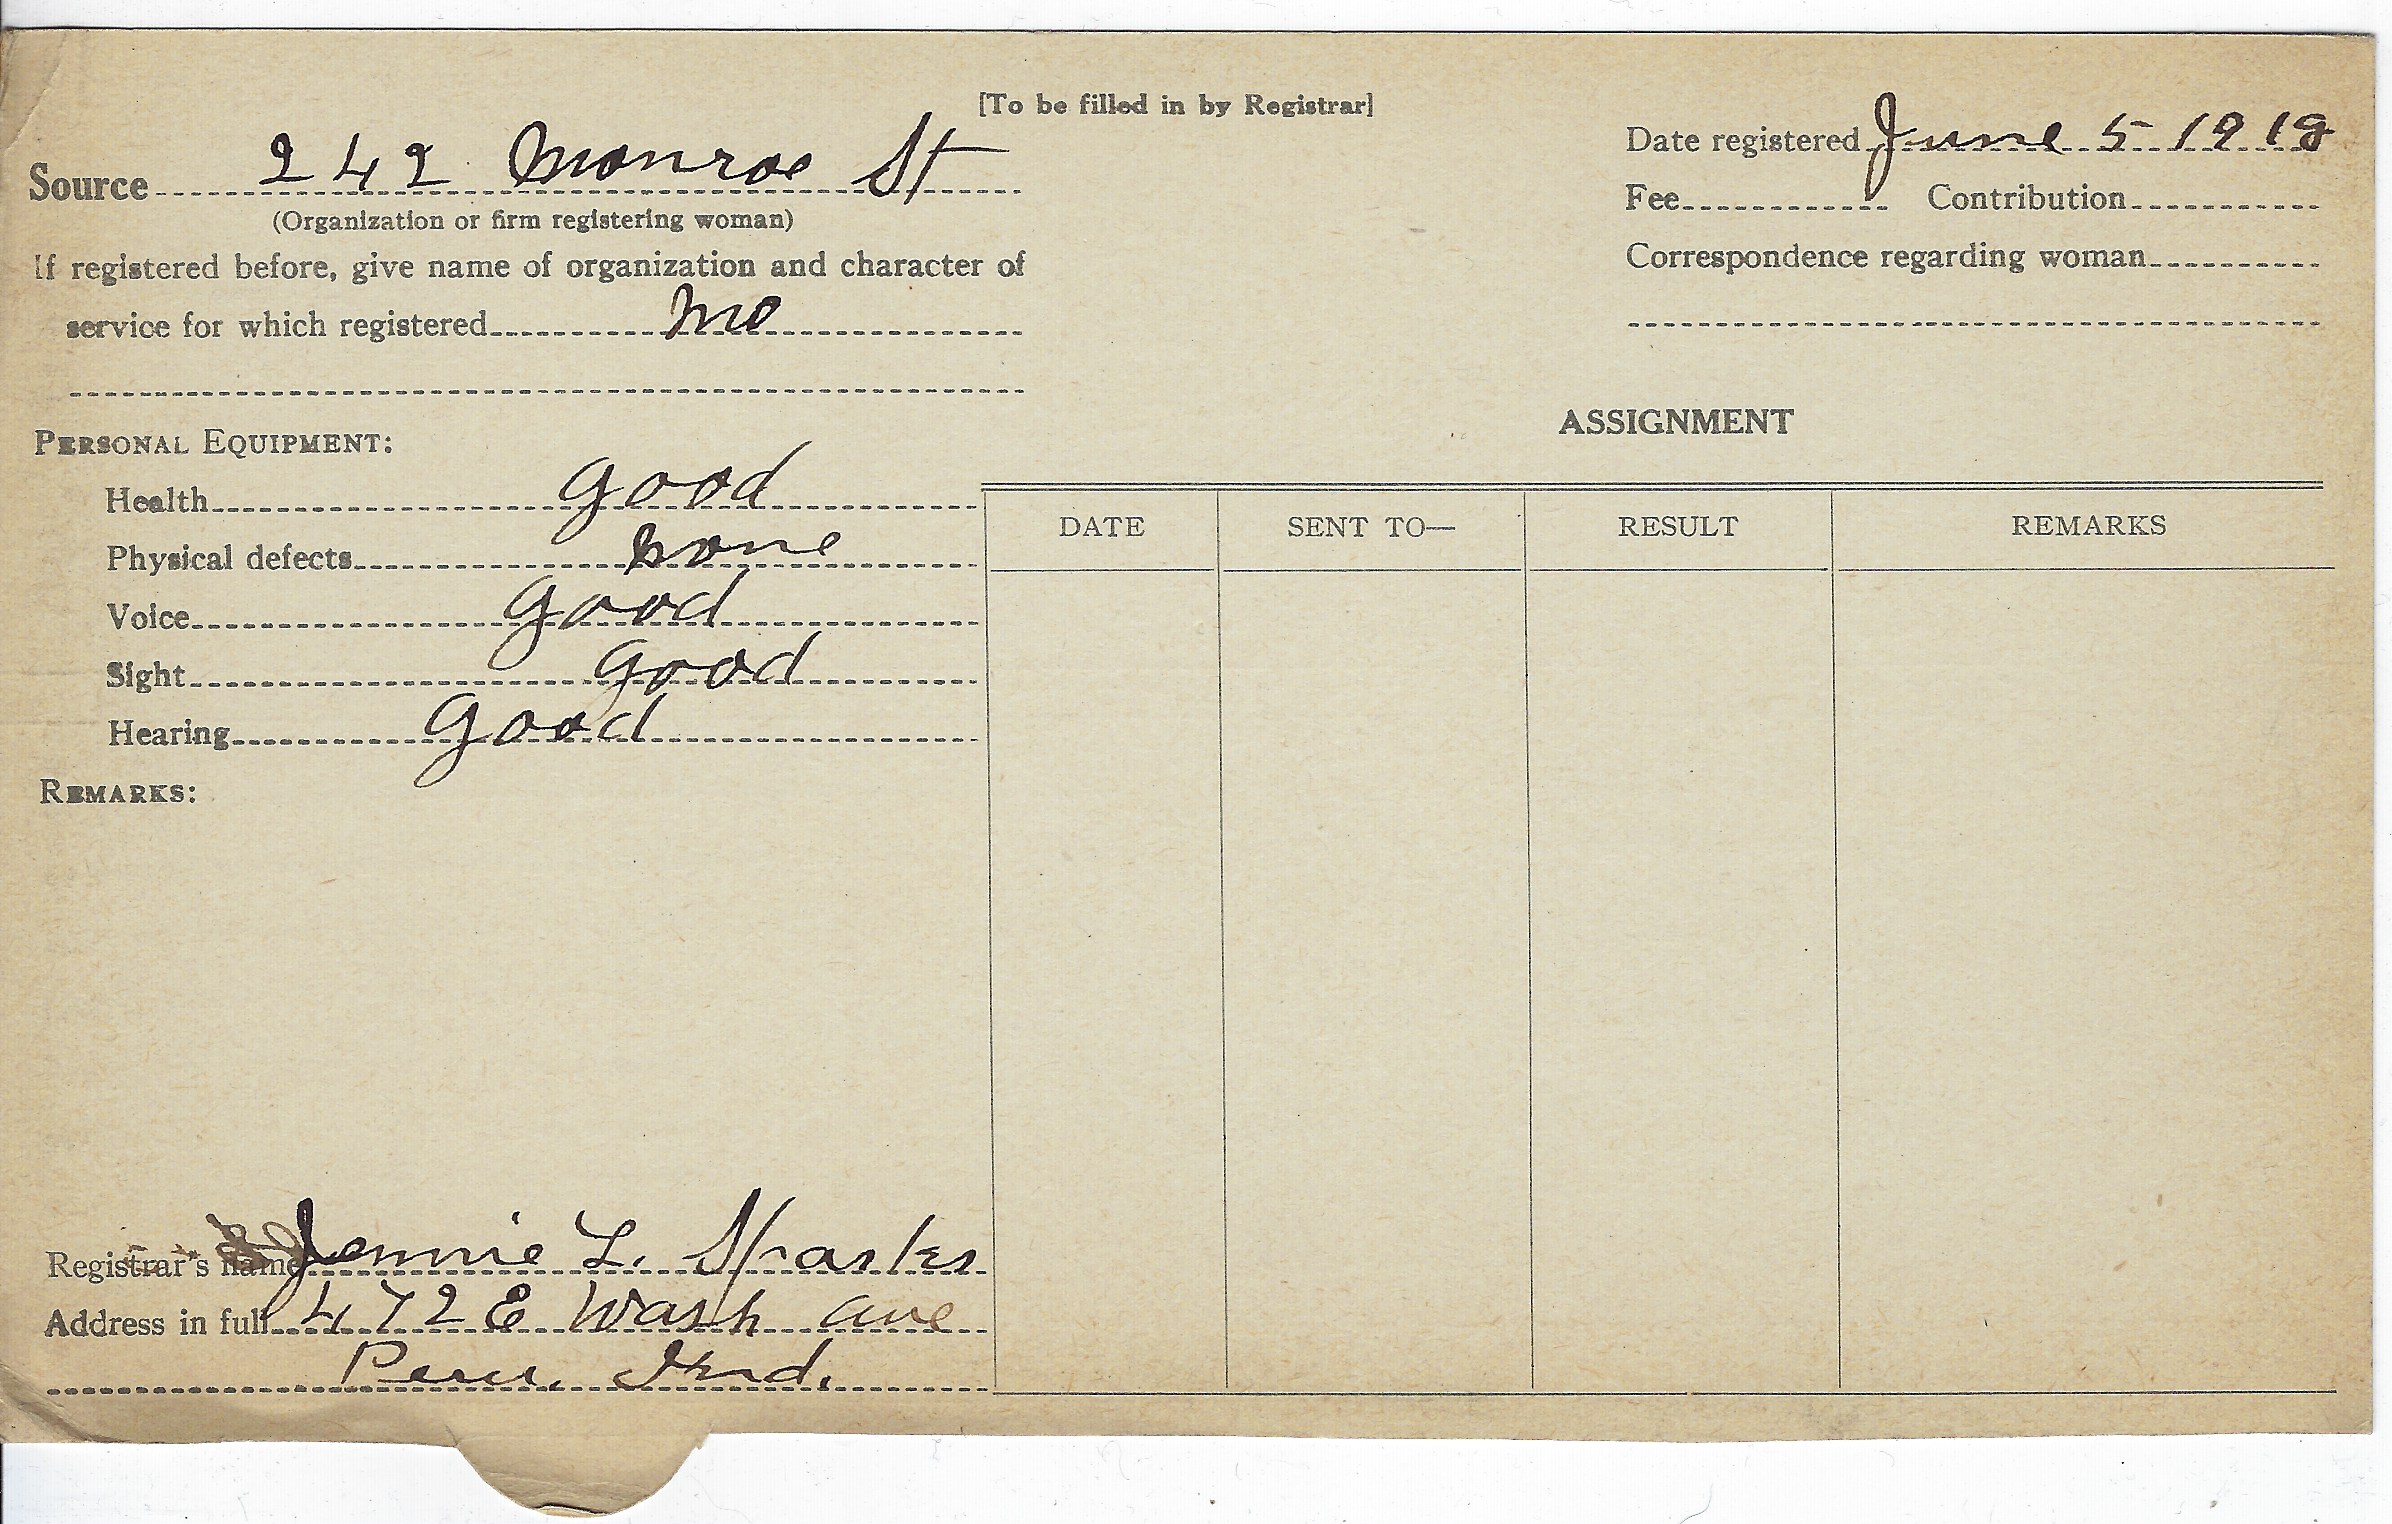 [To be filled in by Registrar]
Source 242 Monroe St
(Organization or firm registering woman)
If registered before, give name of organization and character of
service for which registered no
Date registered June 5 1918
Fee Contribution
Correspondence regarding woman
PERSONAL EQUIPMENT:
Health good
Physical defects none
Voice good
Sight good
Hearing good
REMARKS:
ASSIGNMENT
DATE SENT TO— RESULT REMARKS
Registrar's name Jennie L. Sparks
Address in full 472 E Wash ave
Peru, Ind.